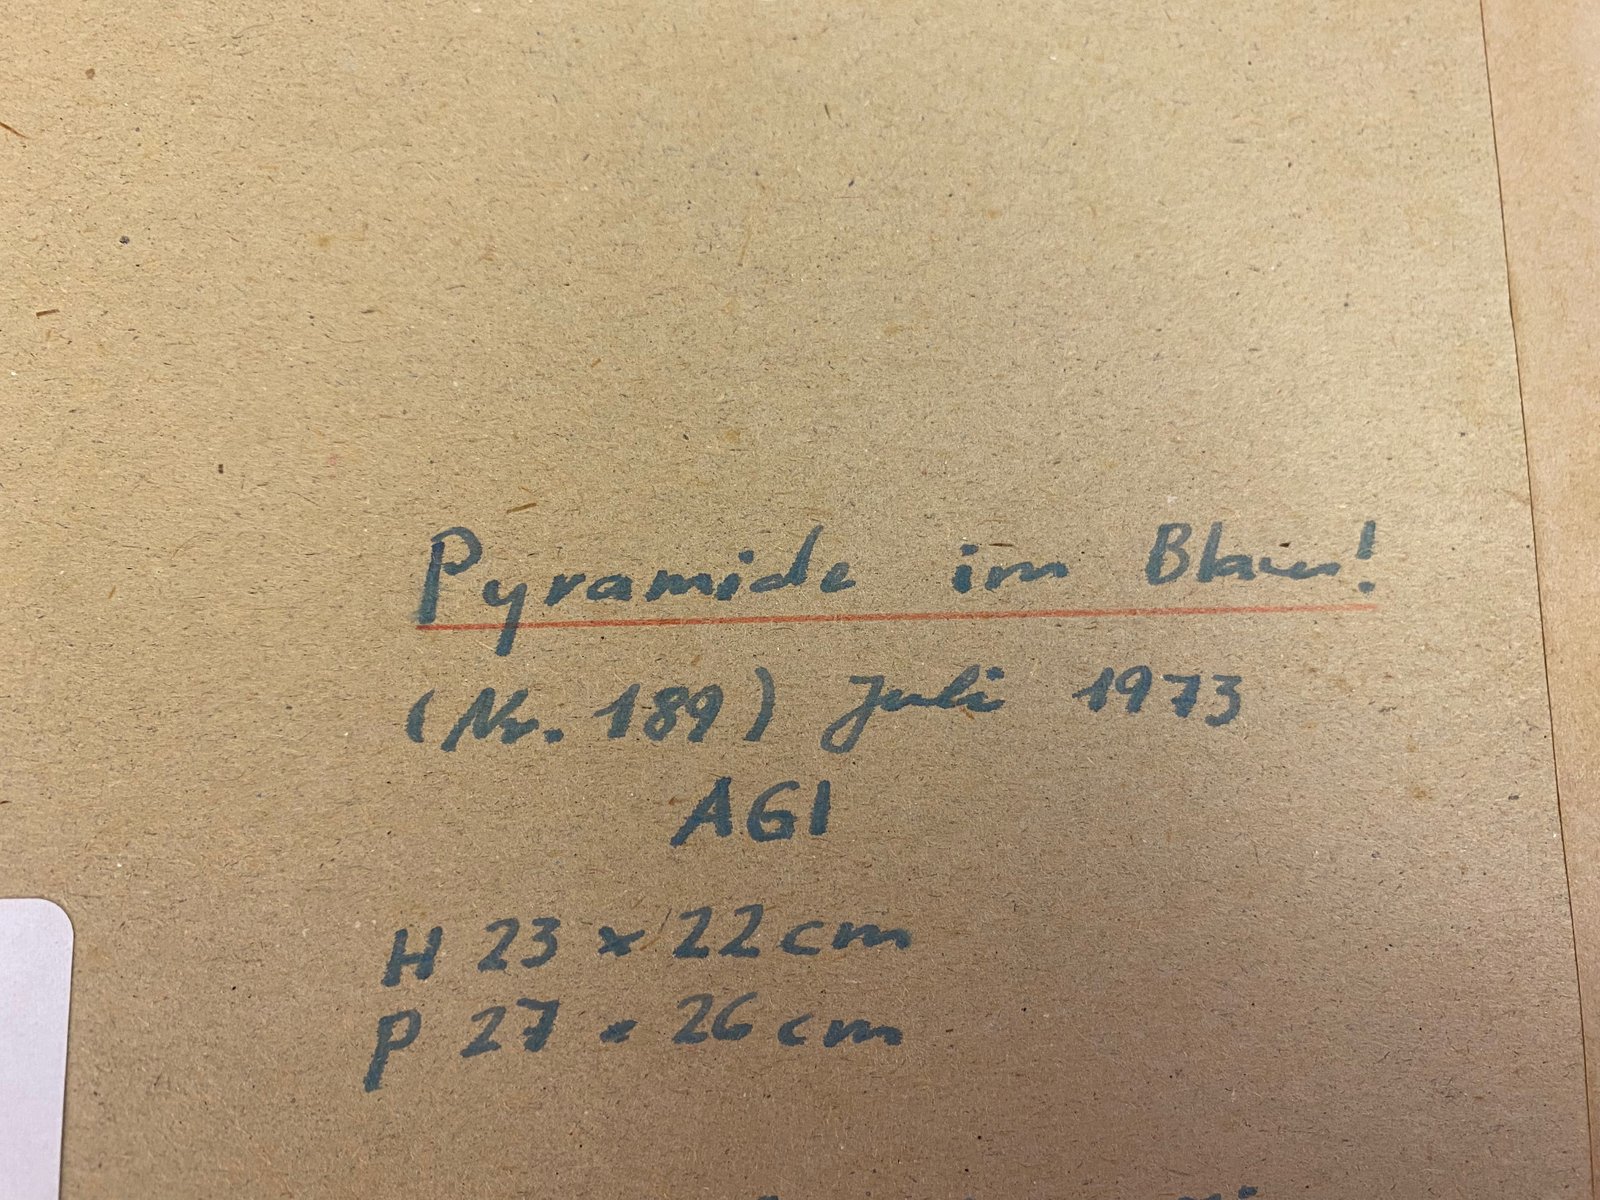 Pyramide im Blau!
(Nr. 189) Juli 1973
AGI
H 23 x 22 cm
P 27 x 26 cm